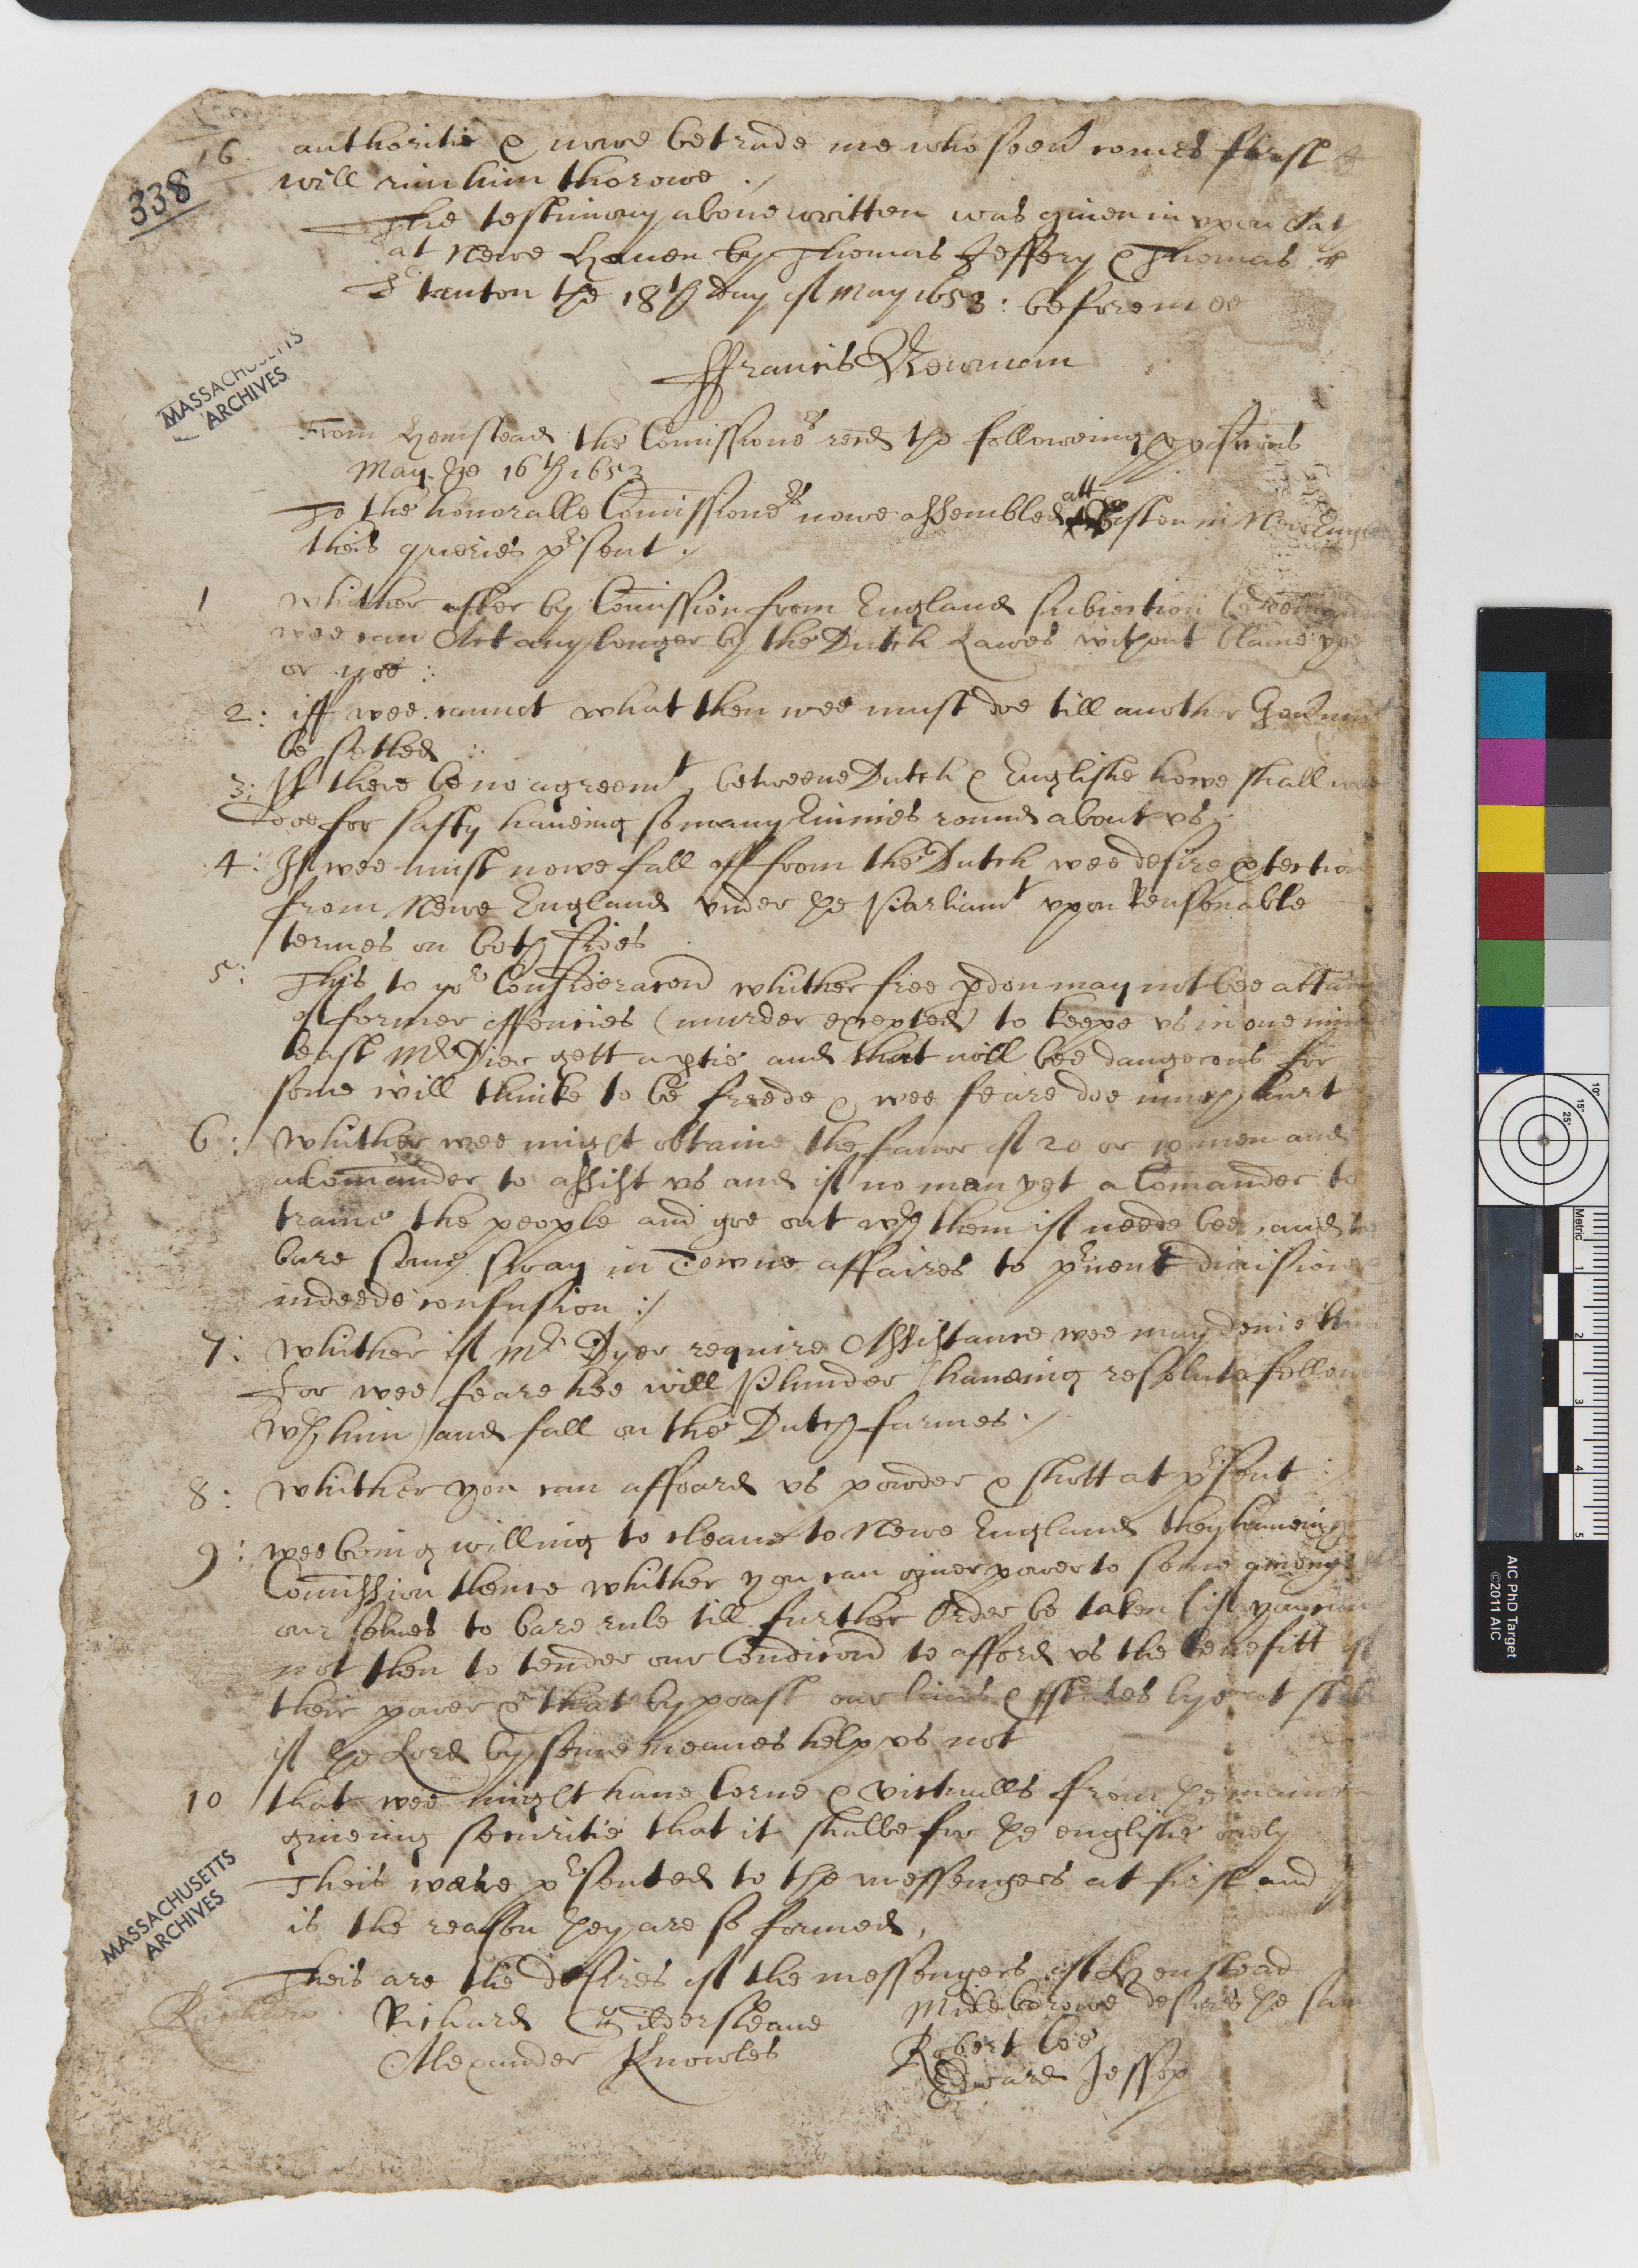 16
338
authoritie & nowe betrade me who soeur comes first
will run him thorowe ./
The testimony above written was giuen in vpon Oath
at Newe Hauen by Thomas Jeffery & Thomas
Stanton the 18th Day of May 1653: before mee
ffrancis Newman
MASSACHUSETTS
ARCHIVES
From Hemstead the Comissionrs recd the followeing ppositions
May the 16th 1653
To the honoralle Comissionrs nowe assembled att Boston in New Engl
theis queries prsent ./
1 Whither after by Comission from England subiection be
wee can Act any longer by the Dutch Lawes without blame yee
or noe :
2: iff wee cannot what then wee must doe till another Gouermt
be setled :
3: If there be no agreemt betweene Dutch & Englishe howe shall wee
doe for safty haueing so many Enimies round about vs ./
4: If wee must nowe fall off from the Dutch wee desire ptection
from Newe England vnder the Parliamt vpon Reasonable
termes on both sides
5: This to yor Consideracon whither free pdon may not bee attain
of former offencies (murder excepted) to keepe vs in one mind
least Mr Dier gett a ptie and that will bee dangerous for
some will thinke to be freede & wee feare doe much hurt
6: Whither wee might obtaine the favor of 20 or 10 men and
a Comander to assist vs and if no men yet a Comander to
traine the people and goe out wth them if neede bee, and to
bare some sway in Towne affaires to prvent diuision
indeede confusion :/
7: Whither if Mr Dyer require Assistance wee may denie him
For wee feare hee will Plunder (haueing resolute follow
wth him) and fall on the Dutch farmes ./
8: Whither you can affoard vs powder & shott at prsent :
9: wee being willing to cleaue to Newe England they haueing
Comission thence whither you can giue power to some among
our selues to bare rule till further Order be taken (if you can
not then to tender our Condicon to afford vs the benefitt of
their power & that by poast our liues & estates lye at stak
if the Lord by some meanes help vs not
10 that wee might haue Corne & victualls from the maine
giueing securitie that it shalbe for the englishe only
MASSACHUSETTS
ARCHIVES
Theis weare prsented to the messengers at first and
is the reason they are so formed,
Theis are the desires of the messengers of Hemstead
Richard Gildersleaue
Alexander Knowles
Midleborowe desires the sam
Robert Coe
Edward Jessop
Richard
AIC PhD Target
©2011 AIC
Metric
1
2
3
4
5
10°
15°
25°